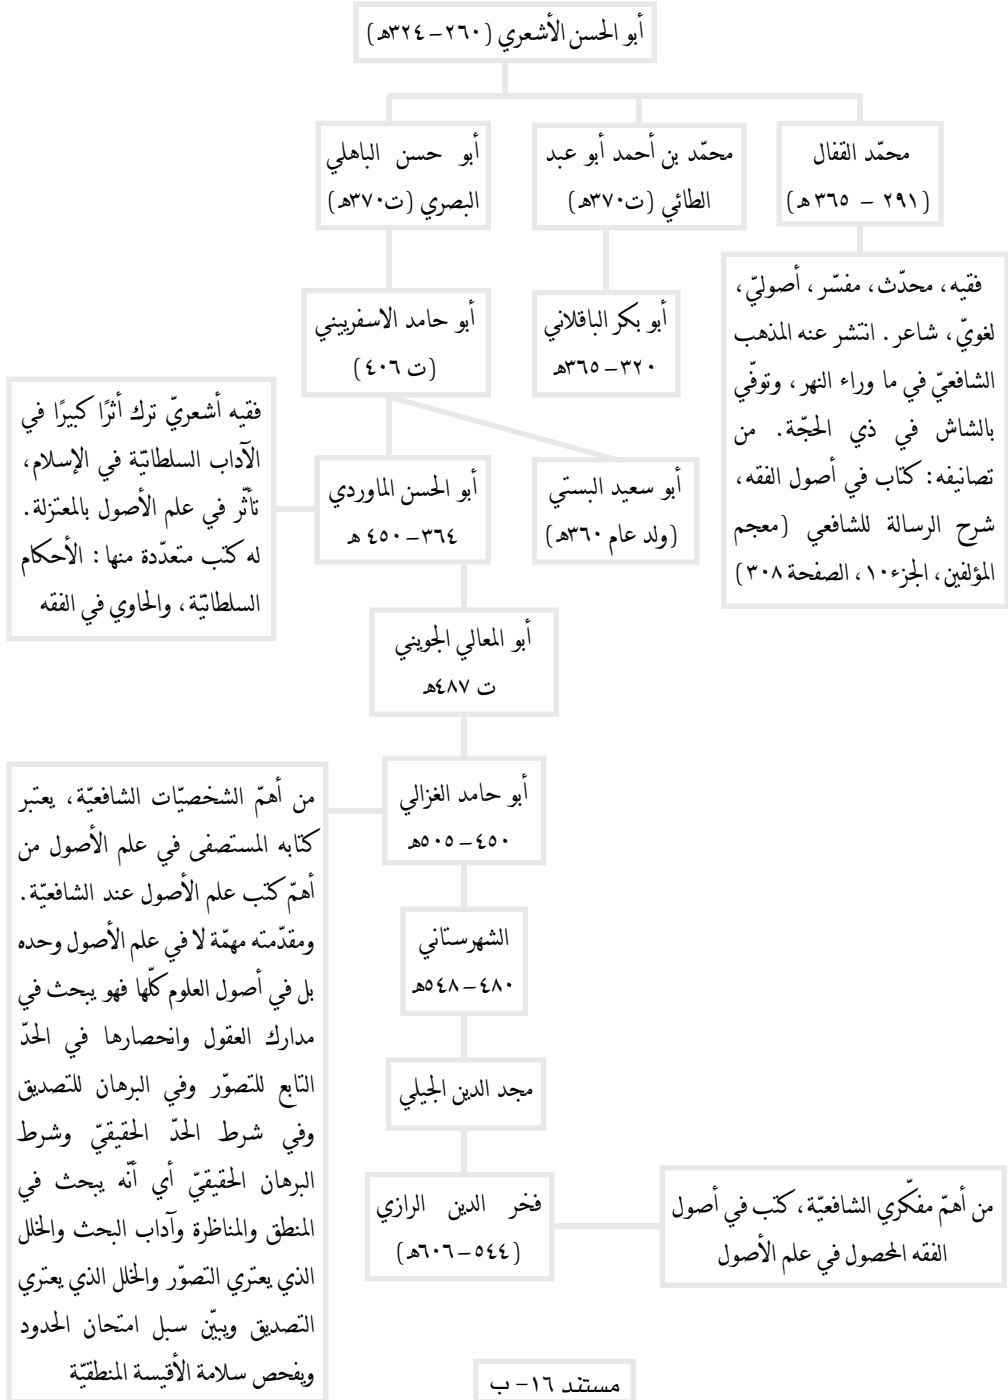 أبو الحسن الأشعري (٢٦٠-٣٢٤هـ)
محمّد القفال
(٢٩١ - ٣٦٥ هـ)
محمّد بن أحمد أبو عبد
الطائي (ت٣٧٠هـ)
أبو حسن الباهلي
البصري (ت٣٧٠هـ)
فقيه، محدّث، مفسّر، أصوليّ،
لغويّ، شاعر. انتشر عنه المذهب
الشافعيّ في ما وراء النهر، وتوفّي
بالشاش في ذي الحجّة. من
تصانيفه: كتاب في أصول الفقه،
شرح الرسالة للشافعي (معجم
المؤلفين، الجزء١٠، الصفحة ٣٠٨)
أبو بكر الباقلاني
٣٢٠-٣٦٥هـ
أبو حامد الاسفرييني
(ت ٤٠٦)
أبو سعيد البستي
(ولد عام ٣٦٠هـ)
أبو الحسن الماوردي
٣٦٤-٤٥٠ هـ
فقيه أشعريّ ترك أثرًا كبيرًا في
الآداب السلطانيّة في الإسلام،
تأثّر في علم الأصول بالمعتزلة.
له كتب متعدّدة منها: الأحكام
السلطانيّة، والحاوي في الفقه
أبو المعالي الجويني
ت ٤٨٧هـ
أبو حامد الغزالي
٤٥٠-٥٠٥هـ
من أهمّ الشخصيّات الشافعيّة، يعتبر
كتابه المستصفى في علم الأصول من
أهمّ كتب علم الأصول عند الشافعيّة.
ومقدّمته مهمّة لا في علم الأصول وحده
بل في أصول العلوم كلّها فهو يبحث في
مدارك العقول وانحصارها في الحدّ
التابع للتصوّر وفي البرهان للتصديق
وفي شرط الحدّ الحقيقيّ وشرط
البرهان الحقيقيّ أي أنّه يبحث في
المنطق والمناظرة وآداب البحث والخلل
الذي يعتري التصوّر والخلل الذي يعتري
التصديق ويبيّن سبل امتحان الحدود
ويفحص سلامة الأقيسة المنطقيّة
الشهرستاني
٤٨٠-٥٤٨هـ
مجد الدين الجيلي
فخر الدين الرازي
(٥٤٤-٦٠٦هـ)
من أهمّ مفكّري الشافعيّة، كتب في أصول
الفقه المحصول في علم الأصول
مستند ١٦- ب